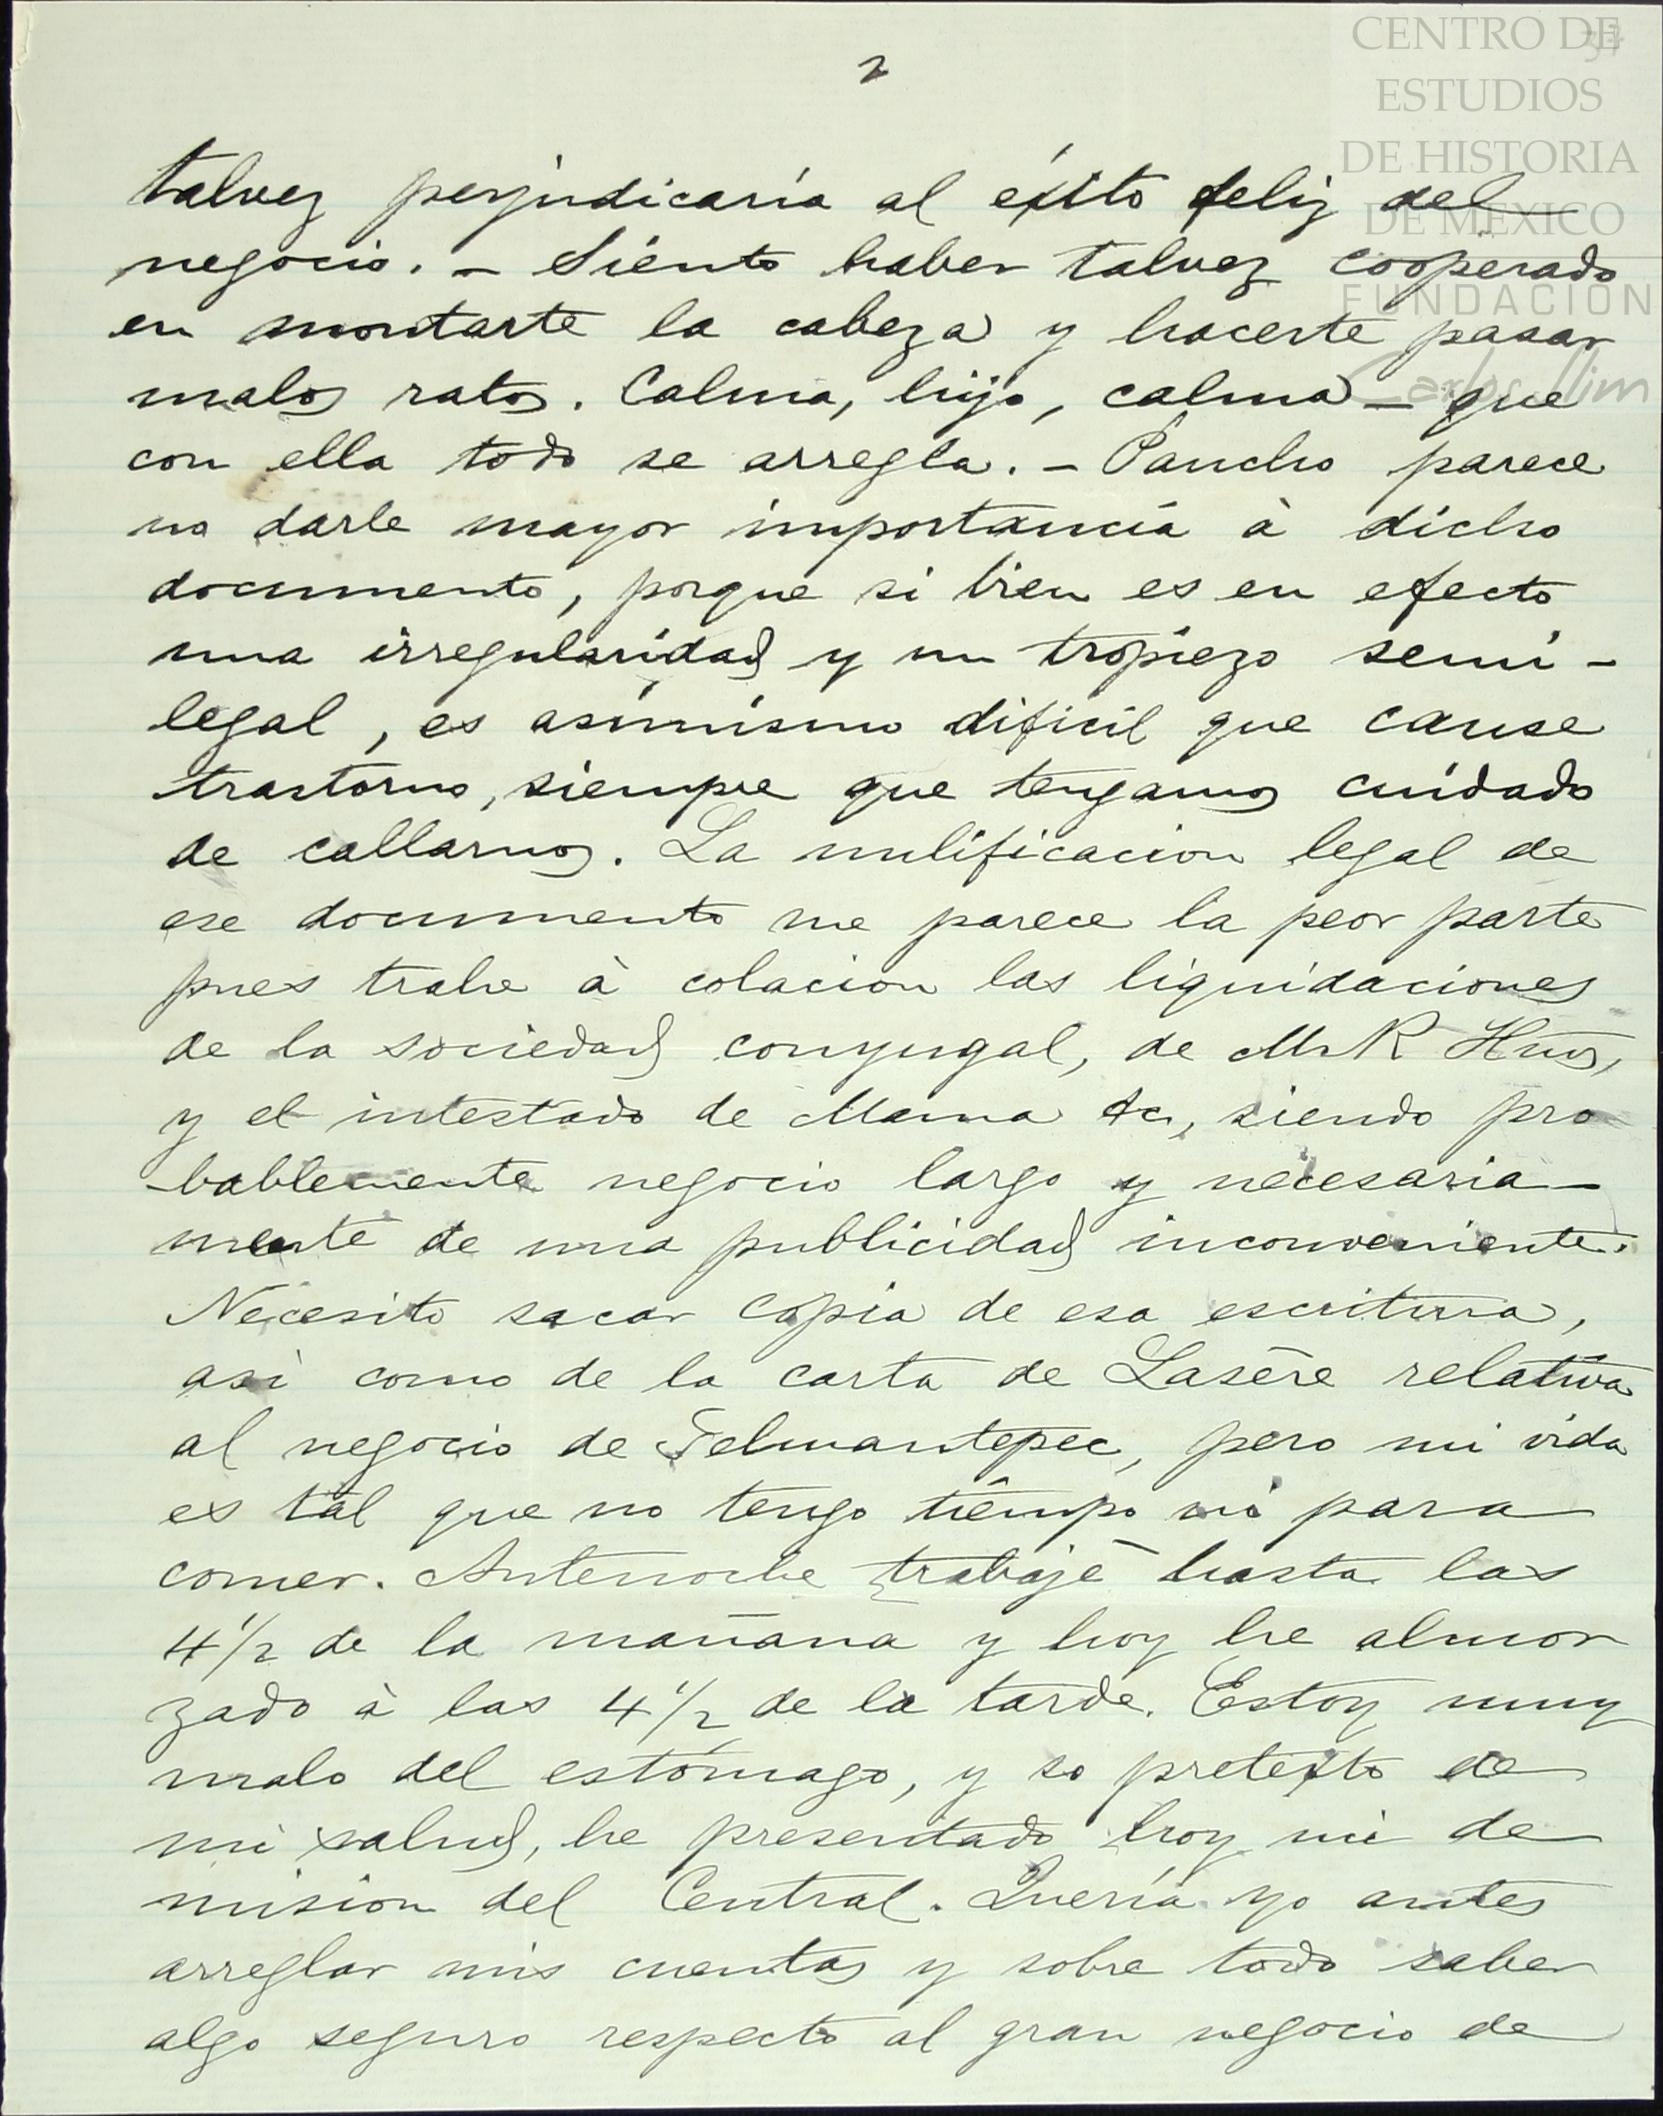 2
CENTRO DE
ESTUDIOS
DE HISTORIA
DE MÉXICO
FUNDACIÓN
Carlos Slim
talvez perjudicaría al éxito feliz del
negocio. – Siento haber talvez cooperado
en montarte la cabeza y hacerte pasar
malos ratos. Calma, hijo, calma – que
con ella todo se arregla. – Pancho parece
no darle mayor importancia à dicho
documento, porque si bien es en efecto
una irregularidad y un tropiezo semi-
legal, es asimismo dificil que cause
trastorno, siempre que tengamos cuidado
de callarnos. La nulificacion legal de
ese documento me parece la peor parte
pues trahe à colacion las liquidaciones
de la sociedad conyugal, de M R Hnos,
y el intestado de Mama &c, siendo pro
-bablemente negocio largo y necesaria-
mente de una publicidad inconveniente.
Necesito sacar copia de esa escritura,
asi como de la carta de Lasére relativa
al negocio de Tehuantepec, pero mi vida
es tal que no tengo tiempo ni para
comer. Antenoche trabajé hasta las
4 1/2 de la mañana y hoy he almor
zado à las 4 1/2 de la tarde. Estoy muy
malo del estómago, y so pretexto de
mi salud, he presentado hoy mi de
mision del Central. Quería yo antes
arreglar mis cuentas y sobre todo saber
algo seguro respecto al gran negocio de